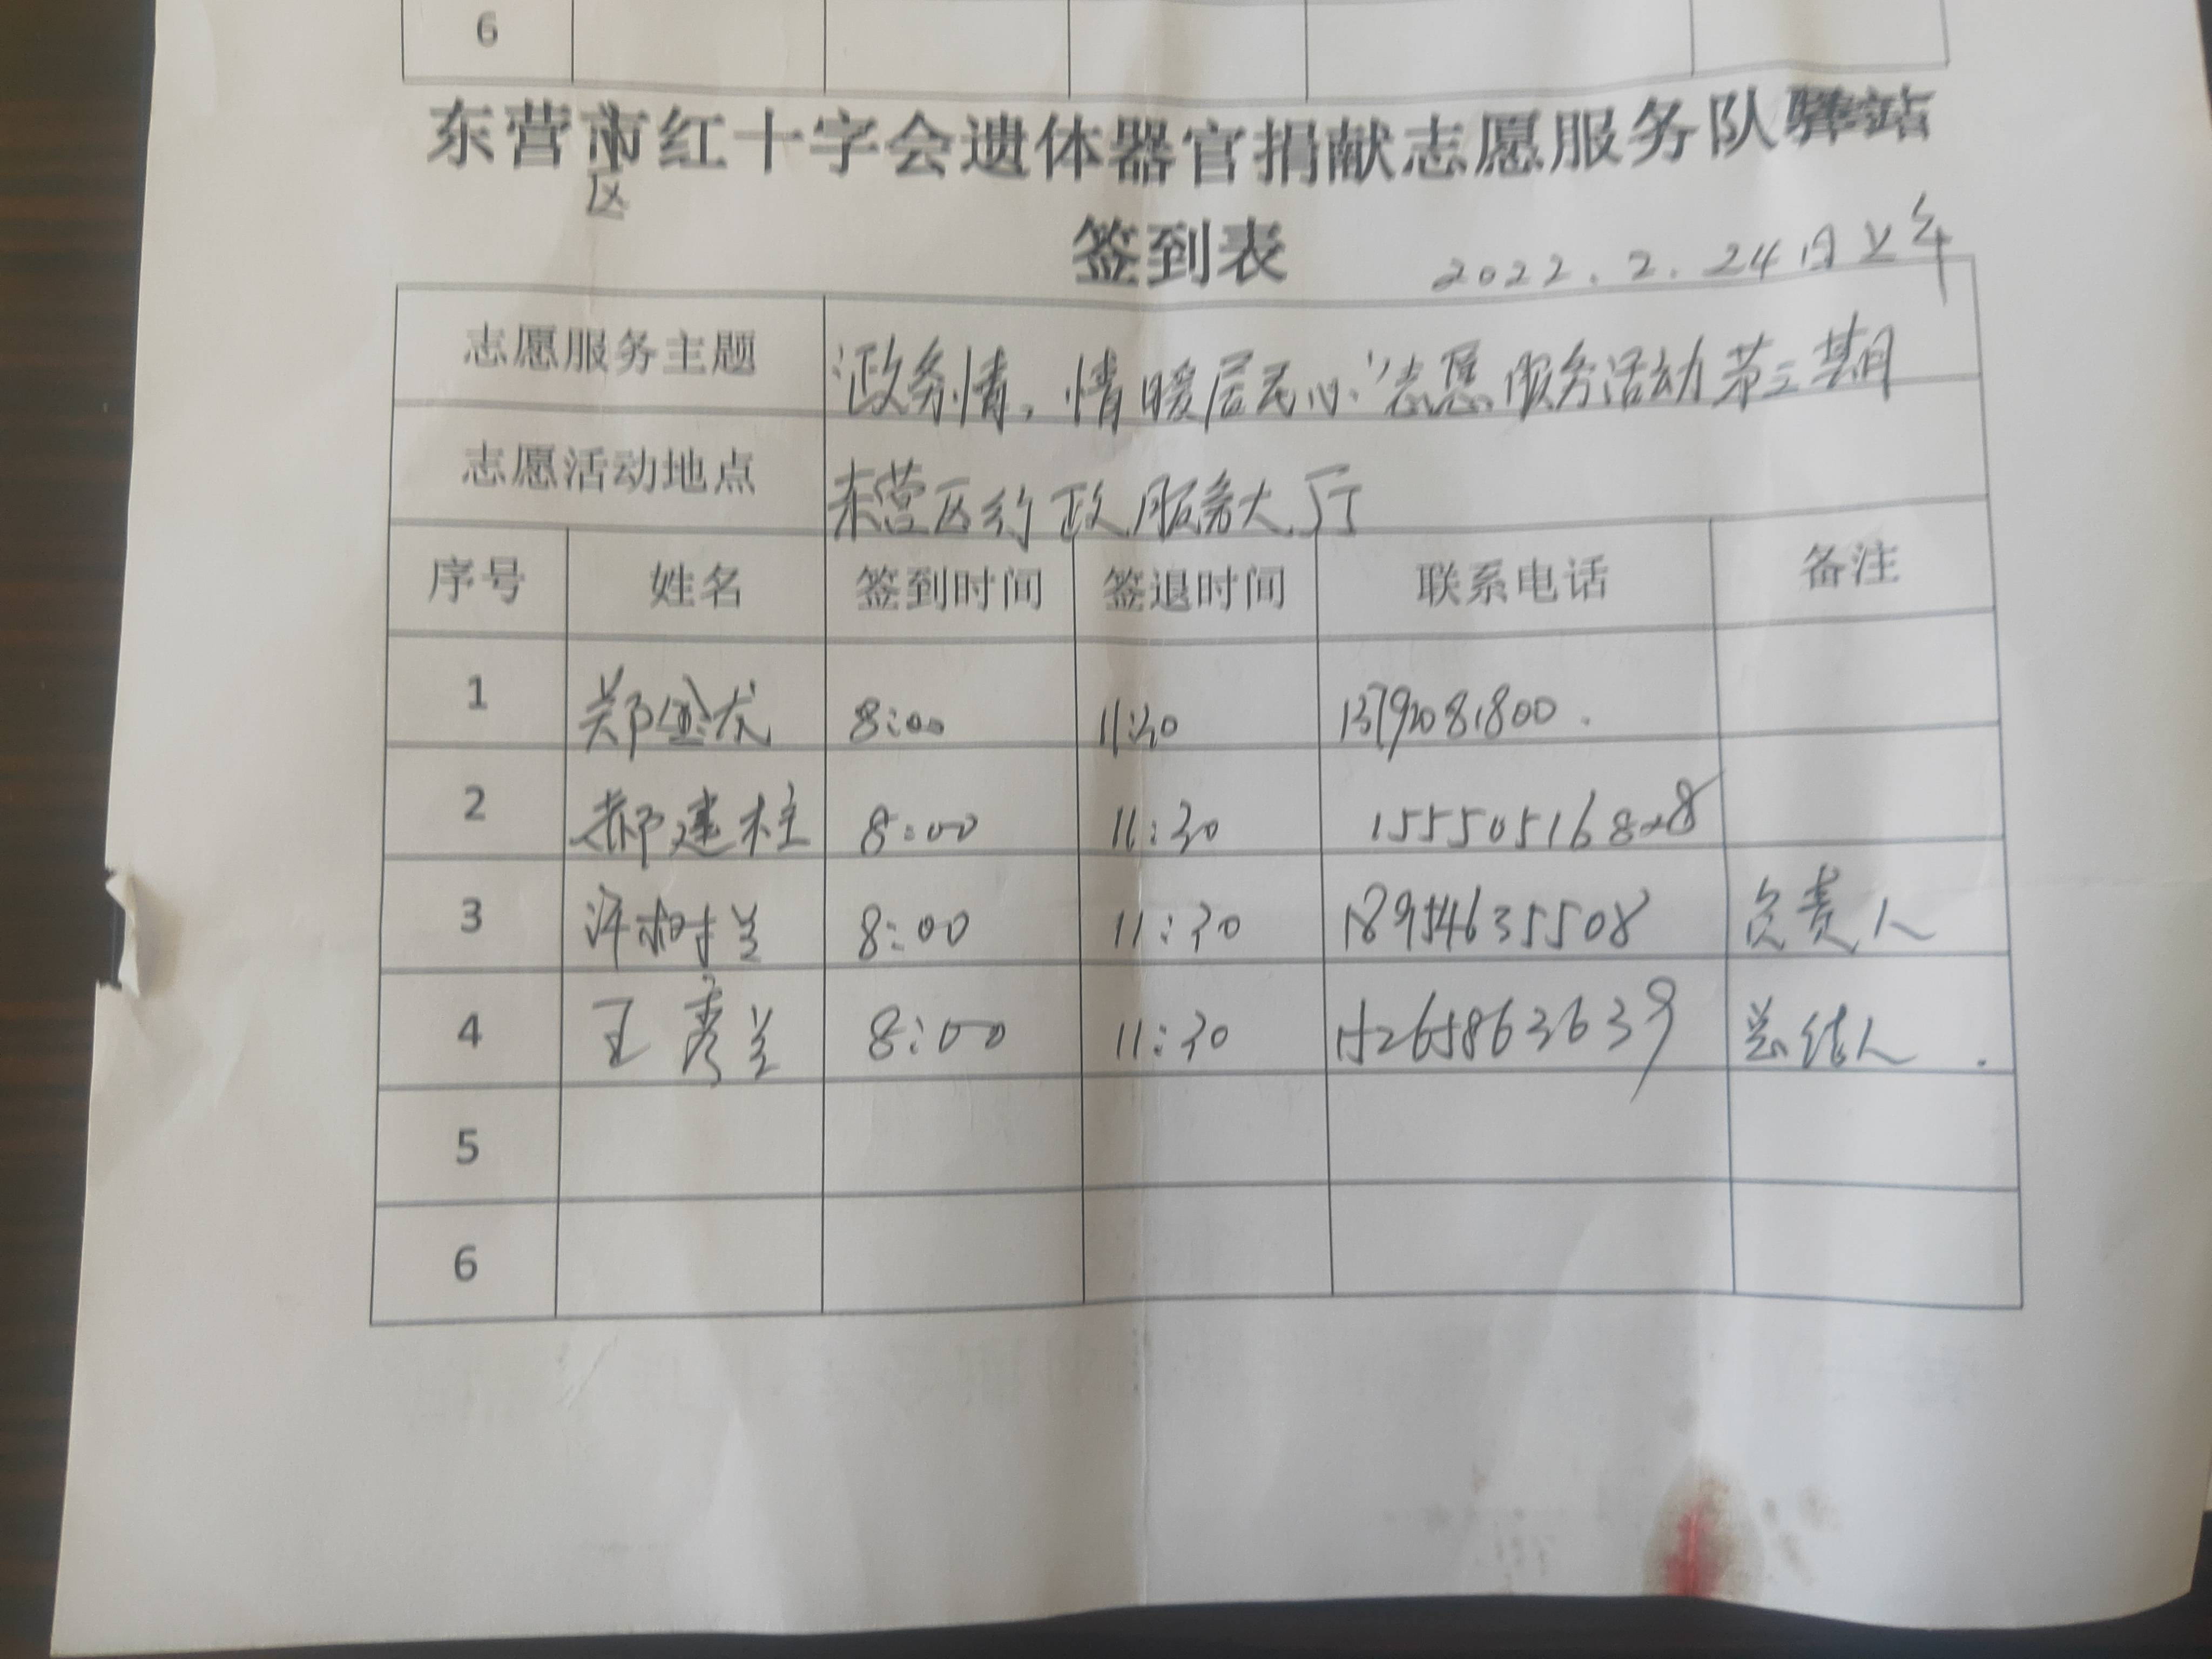 6
东营市红十字会遗体器官捐献志愿服务队驿站
区
签到表
2022.2.24日上午
志愿服务主题 政务情,情暖居民心"志愿服务活动第三期
志愿活动地点 东营区行政服务大厅
序号 姓名 签到时间 签退时间 联系电话 备注
1 郑 8:00 11:30 13792081800.
2 郝建柱 8:00 11:30 15550516828
3 树兰 8:00 11:30 18954635508 负责人
4 王秀兰 8:00 11:30 15265863639 总结人.
5
6